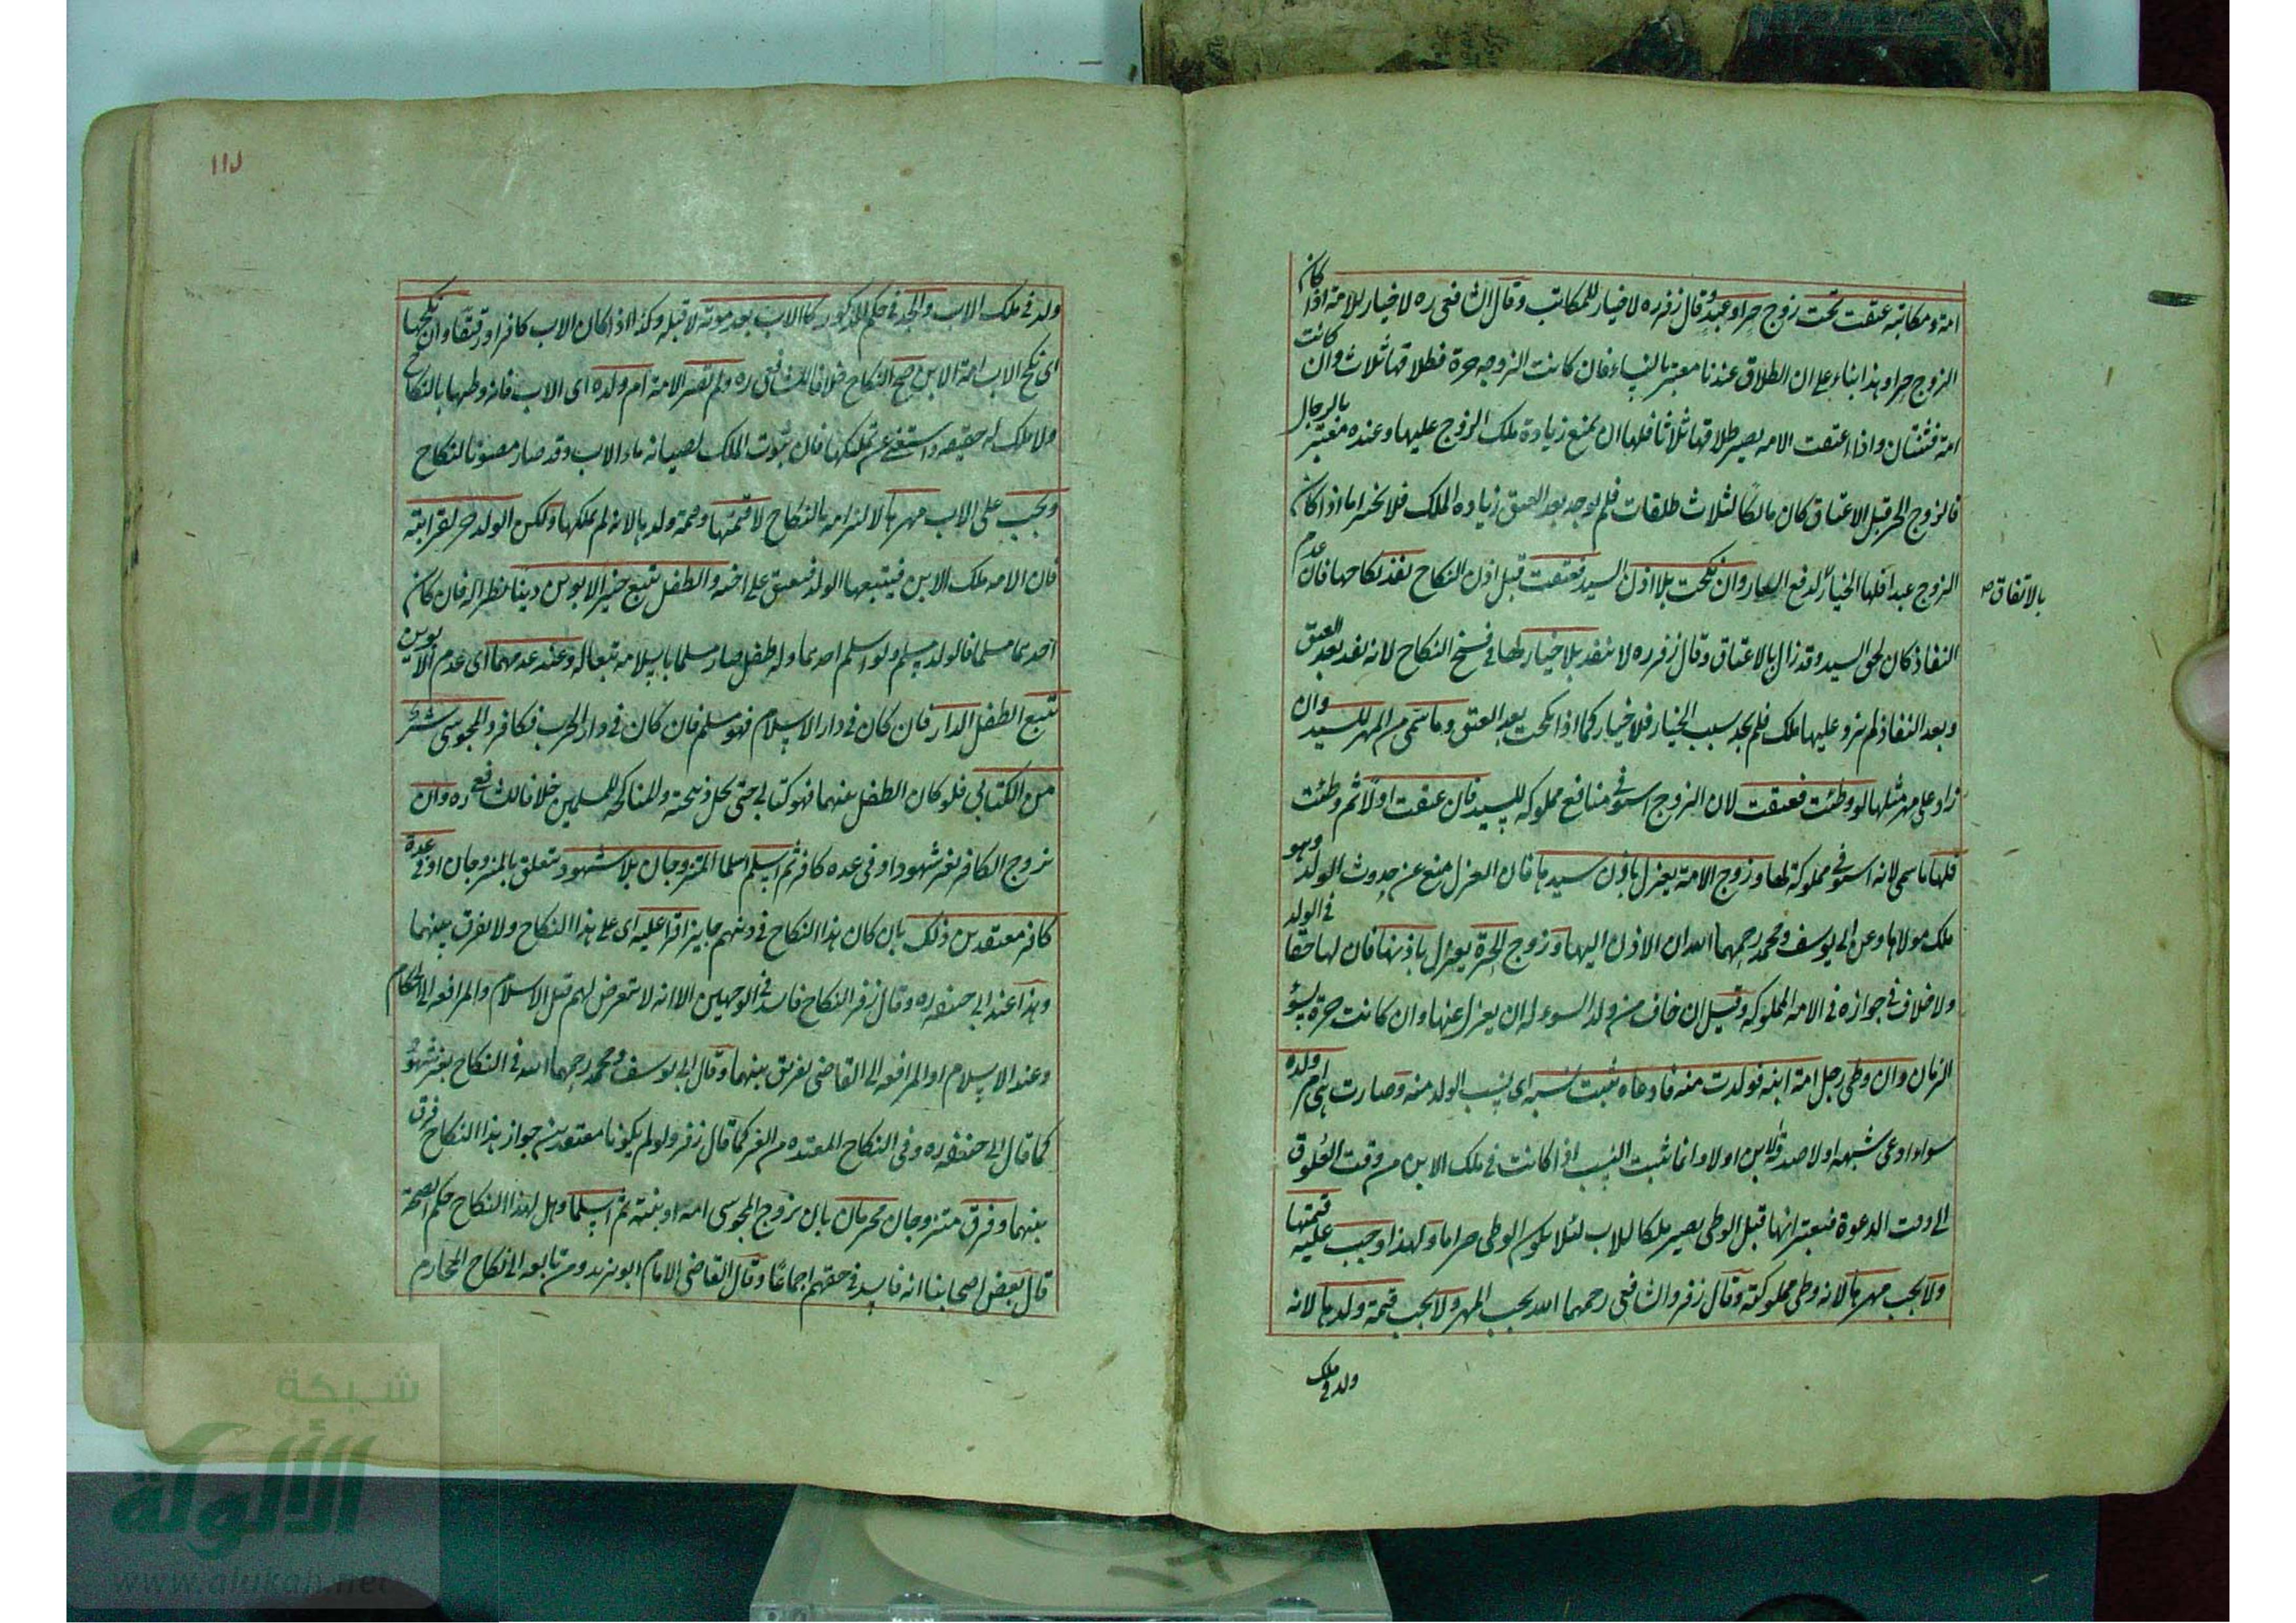 امة ومكاتبة عتقت تحت زوج حر او عبد وقال زفر ره لا خيار للمكاتب وقال الشافعى ره لا خيار للامة اذا كان
الزوج حرا وهذا بناء على ان الطلاق عندنا معتبر بالنساء فان كانت الزوجه حرة فطلاقها ثلاث وان كانت
امة فثنتان واذا اعتقت الامه يصير طلاقها ثلاثا فلها ان يمنع زيادة ملك الزوج عليها وعنده معتبر بالرجال
فالزوج الحر قبل الاعتاق كان مالكا لثلاث طلقات فلم يوجد بعد العتق زياده الملك فلا يخير اما اذا كان
الزوج عبدا فلها الخيار لدفع العار وان نكحت بلا اذن السيد فعتقت قبل اذن النكاح نفذ نكاحها فان عدم
بالاتفاق
النفاذ كان لحق السيد وقد زال بالاعتاق وقال زفر ره لا ينفذ بلا خيار لها فى فسخ النكاح لانه نفذ بعد العتق
وبعد النفاذ لم يزد عليها ملك فلم يجد سبب الخيار فلا خيار كما اذا نكحت بعد العتق وما سمى من المهر للسيد وان
زاد على مهر مثلها لو وطئت فعتقت لان الزوج استوفى منافع مملوكه للسيد فان عتقت اولا ثم وطئت
فلها ما سمى لانه استوفى مملوكة لها وزوج الامة يعزل باذن سيدها فان العزل منع عن حدوث الولد وهو
ملك مولاها وعن ابى يوسف ومحمد رحمهما الله ان الاذن اليها وزوج الحرة يعزل باذنها فان لها حقا فى الولد
ولا خلاف فى جوازه فى الامه المملوكه وقيل ان خاف من ولد السوء له ان يعزل عنها وان كانت حرة لسوء
الزمان وان وطى رجل امة ابنه فولدت منه فادعاه ثبت نسبه اى نسب الولد منه وصارت هى ام ولده
سواء ادعى شبهه اولا صدقه الابن اولا وانما ثبت النسب اذا كانت فى ملك الابن من وقت العلوق
الى وقت الدعوة فيعتبر انها قبل الوطى يصير ملكا للاب لئلا يكون الوطى حراما ولهذا وجب عليه قيمتها
ولا يجب مهرها لانه وطى مملوكته وقال زفر والشافعى رحمهما الله يجب المهر ولا يجب قيمة ولدها لانه
ولد فى ملك
١١٥
ولد فى ملك الاب والجد فى حكم المذكور كالاب بعد موته لا قبله وكذا اذا كان الاب كافرا او رقيقا وان نكحها
اى نكح الاب امة الابن صح النكاح خلافا للشافعى ره ولم تصر الامة ام ولده اى الاب فانه وطيها بالنكاح
ولا ملك له حقيقه واستغنى عن تملكها فان ثبوت الملك لصيانه ماء الاب وقد صار مصونا بالنكاح
ويجب على الاب مهرها لالتزامه بالنكاح لا قيمتها وقيمة ولدها لانه لم يملكها ولكن الولد حر لقرابته
فان الامه ملك الابن فيتبعها الولد فيعتق على اخيه والطفل يتبع خير الابوين دينا نظرا له فان كان
احدهما مسلما فالولد مسلم ولو اسلم احدهما وله طفل صار مسلما باسلامه تبعا له وعند عدمهما اى عدم الابوين
يتبع الطفل الدار فان كان فى دار الاسلام فهو مسلم فان كان فى دار الحرب فكافر والمجوسى شر
من الكتابى فلو كان الطفل عنهما فهو كتابى حتى يحل ذبيحته والمناكحه للمسلمين خلافا للشافعى ره وان
تزوج الكافر بغير شهود او فى عده كافر ثم اسلم اسلما المتزوجان بلا شهود يتعلق بالمتزوجان او فى عدة
كافر معتقدين ذلك بان كان هذا النكاح فى دينهم جايزا قرا عليه اى على هذا النكاح ولا يفرق بينهما
وهذا عند ابى حنيفه ره وقال زفر النكاح فاسد فى الوجهين الا انه لا يتعرض لهم قبل الاسلام والمرافعه الى الحكام
وعند الاسلام او المرافعه الى القاضى يفريق بينهما وقال ابى يوسف ومحمد رحمهما الله فى النكاح بغير شهود
كما قال ابى حنيفه ره وفى النكاح المعتده من الغير كما قال زفر ولو لم يكونا معتقدين جواز هذا النكاح فرق
بينهما وفرق متزوجان محرمان بان تزوج المجوسى امه او بنته ثم اسلما وهل لهذا النكاح حكم الصحة
قال بعض اصحابنا انه فاسد فى حقهم اجماعا وقال القاضى الامام ابو زيد ومن تابعه ان نكاح المحارم
شبكة
الألوكة
www.alukah.net